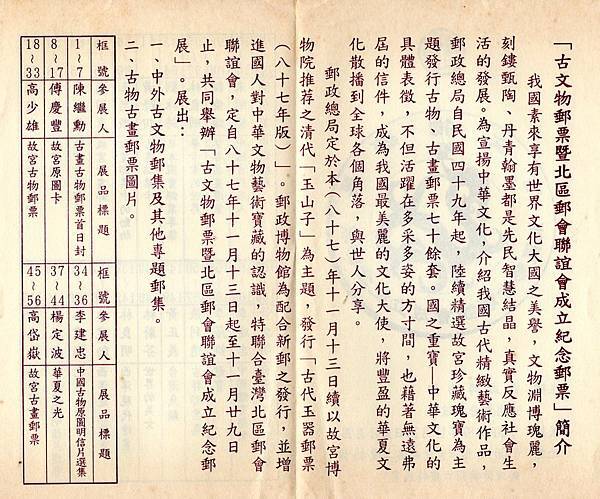 「古文物郵票暨北區郵會聯誼會成立紀念郵票」簡介
我國素來享有世界文化大國之美譽，文物淵博瑰麗，
刻鏤甄陶、丹青翰墨都是先民智慧結晶，真實反應社會生
活的發展。為宣揚中華文化，介紹我國古代精緻藝術作品，
郵政總局自民國四十九年起，陸續精選故宮珍藏瑰寶為主
題發行古物、古畫郵票七十餘套。國之重寶—中華文化的
具體表徵，不但活躍在多采多姿的方寸間，也藉著無遠弗
屆的信件，成為我國最美麗的文化大使，將豐盈的華夏文
化散播到全球各個角落，與世人分享。
郵政總局定於本（八十七）年十一月十三日續以故宮博
物院推荐之清代「玉山子」為主題，發行「古代玉器郵票
（八十七年版）」。郵政博物館為配合新郵之發行，並增
進國人對中華文物藝術寶藏的認識，特聯合臺灣北區郵會
聯誼會，定自八十七年十一月十三日起至十一月廿九日
止，共同舉辦「古文物郵票暨北區郵會聯誼會成立紀念郵
展」。展出：
一、中外古文物郵集及其他專題郵集。
二、古物古畫郵票圖片。
框號 參展人 展品標題
1～7 陳繼勳 古畫古物郵票首日封
8～17 傅慶豐 故宮原圖卡
18～33 高少雄 故宮古物郵票
框號 參展人 展品標題
34～36 李建忠 中國古物原圖明信片選集
37～44 楊定波 華夏之光
45～56 高岱嶽 故宮古畫郵票